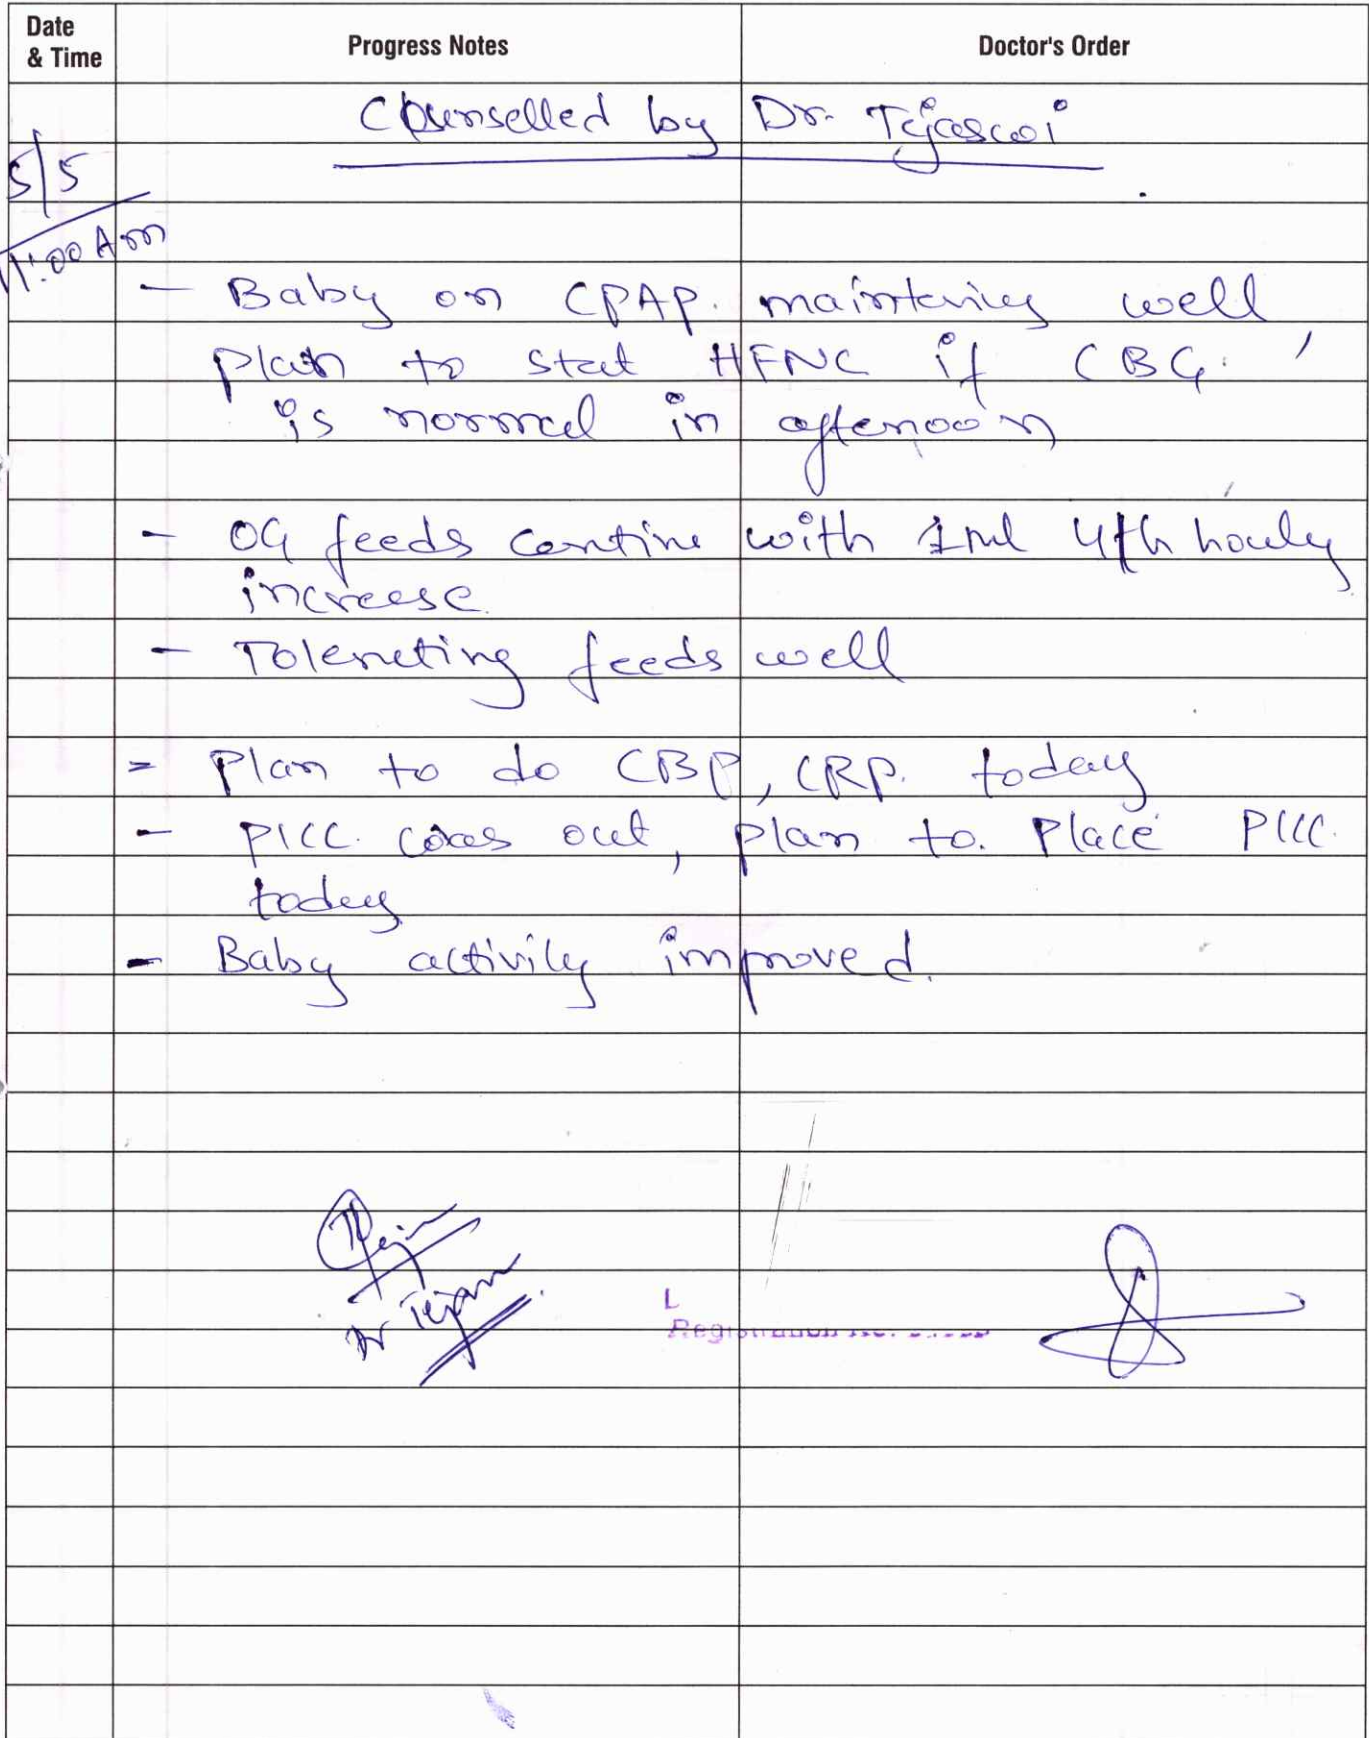 Date & Time Progress Notes Doctor's Order
Counselled by Dr. Tejaswi
5/5
11:00 Am
- Baby on CPAP. maintaining well
Plan to start HFNC if CBG.
is normal in afternoon
- OG feeds continue with 1ml 4th hourly
increase.
- Tolerating feeds well
= Plan to do CBP, CRP. today
- PICC. was out, plan to. Place PICC.
today
- Baby activity improved.
Dr
L
Registration No.